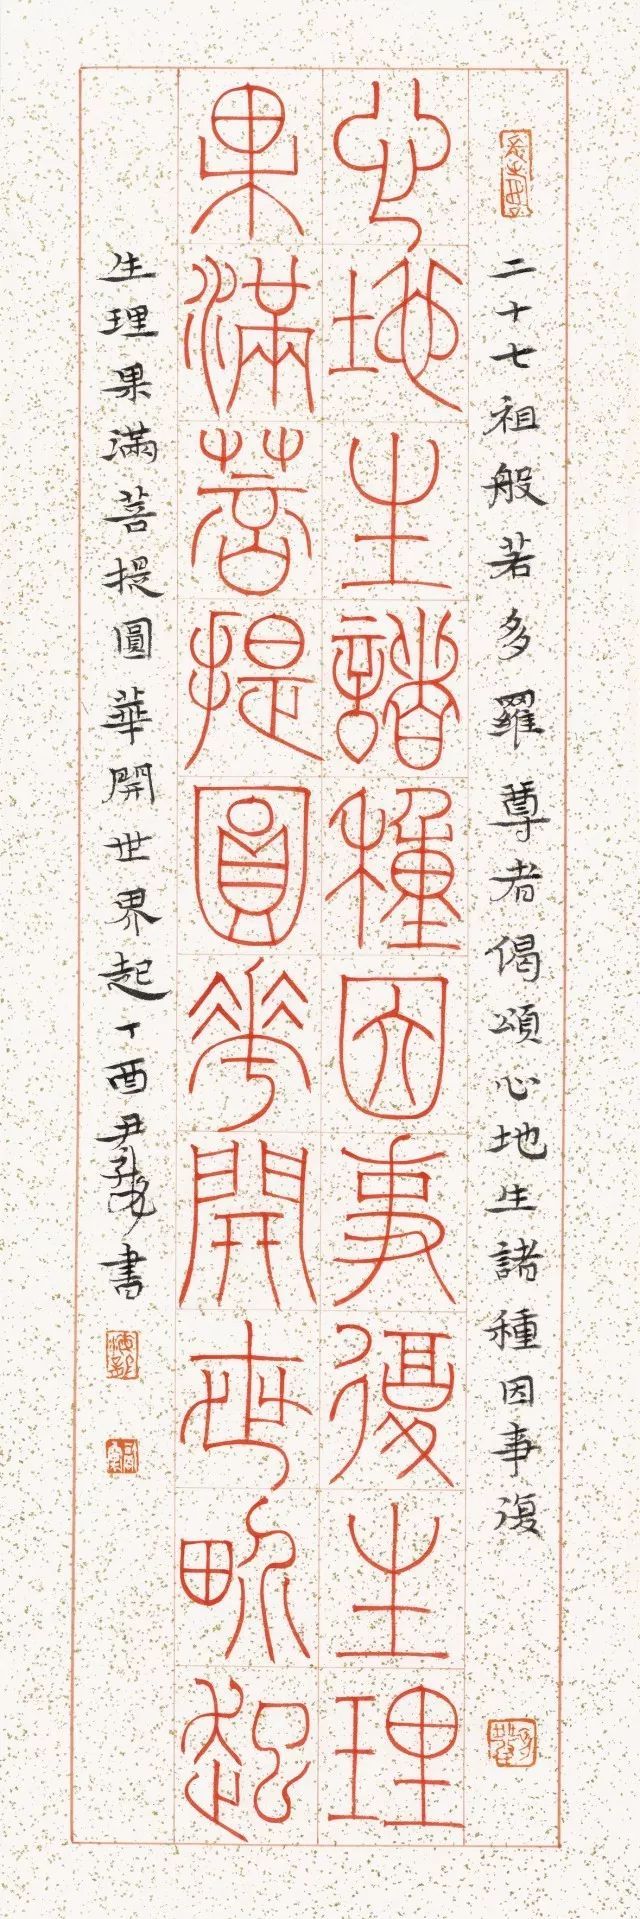 二十七祖般若多羅尊者偈頌心地生諸種因事復
心地生諸種因事復生理
果滿菩提圓華開世界起
生理果滿菩提圓華開世界起丁酉尹書